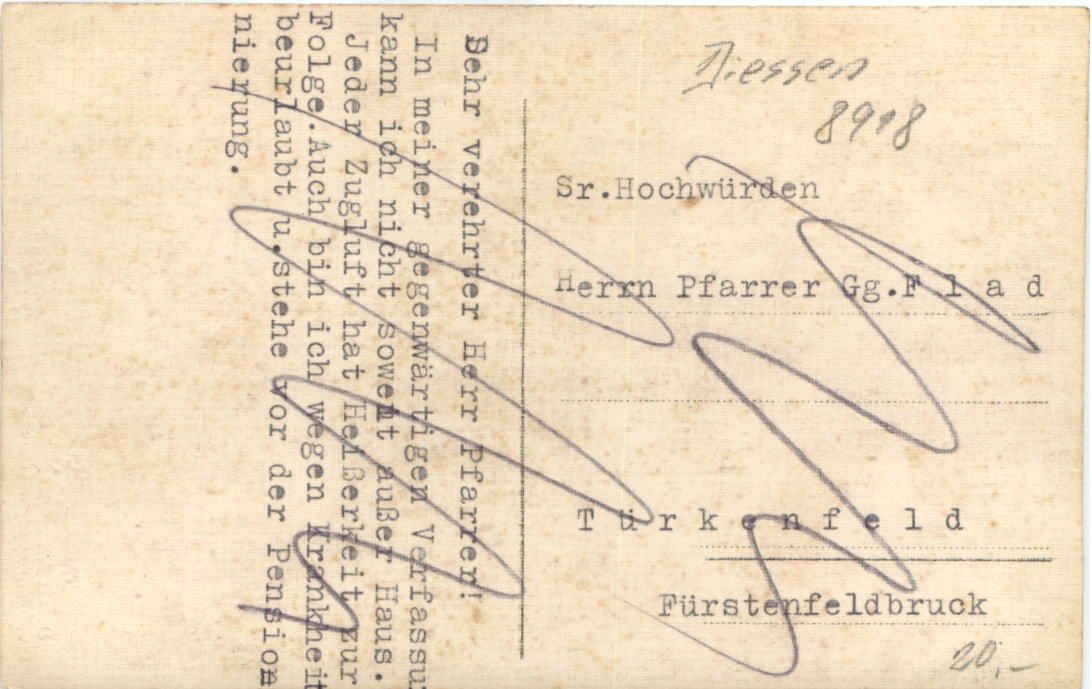 Sehr verehrter Herr Pfarrer!
In meiner gegenwärtigen Verfassu
kann ich nicht soweit außer Haus.
Jeder Zugluft hat Heißerkeit zur
Folge.Auch bin ich wegen Krankheit
beurlaubt u.stehe vor der Pension
nierung.
Diessen
8918
Sr.Hochwürden
Herrn Pfarrer Gg.F l a d
T ü r k e n f e l d
Fürstenfeldbruck
20,-